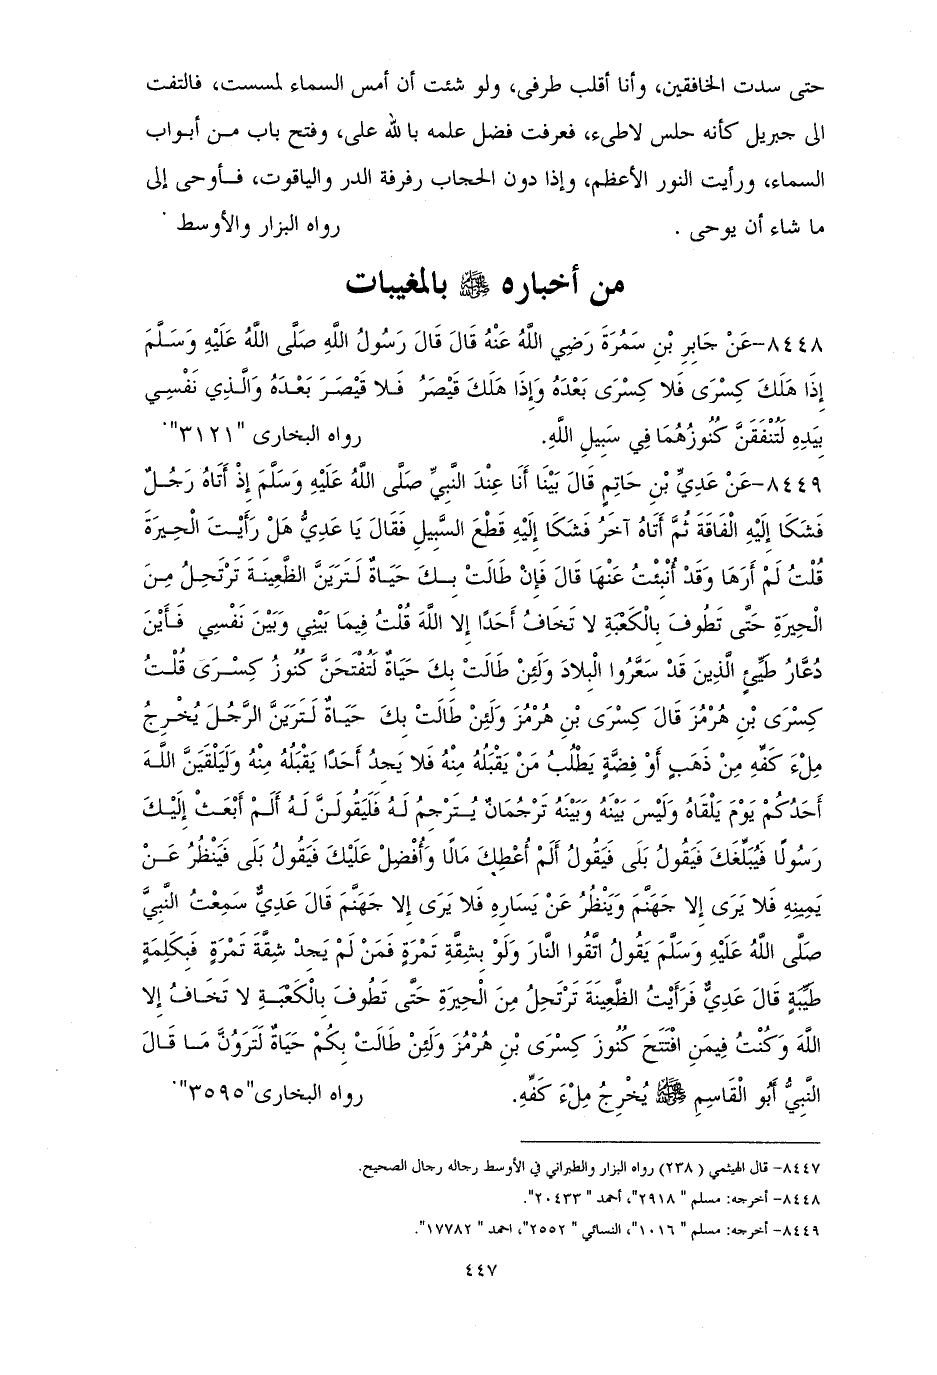 حتى سدت الخافقين، وأنا أقلب طرفى، ولو شئت أن أمس السماء لمسست، فالتفت
الى جبريل كأنه حلس لاطىء، فعرفت فضل علمه بالله على، وفتح باب من أبواب
السماء، ورأيت النور الأعظم، وإذا دون الحجاب رفرفة الدر والياقوت، فأوحى إلى
ما شاء أن يوحى . رواه البزار والأوسط ˙
من أخباره ﷺ بالمغيبات
٨٤٤٨-عَنْ جَابِرِ بْنِ سَمُرَةَ رَضِي اللَّهُ عَنْهُ قَالَ قَالَ رَسُولُ اللَّهِ صَلَّى اللَّهُ عَلَيْهِ وَسَلَّمَ
إِذَا هَلَكَ كِسْرَى فَلا كِسْرَى بَعْدَهُ وَإِذَا هَلَكَ قَيْصَرُ فَلا قَيْصَرَ بَعْدَهُ وَالَّذِي نَفْسِي
بِيَدِهِ لَتُنْفَقَنَّ كُنُوزُهُمَا فِي سَبِيلِ اللَّهِ. رواه البخارى "٣١٢١"˙
٨٤٤٩-عَنْ عَدِيِّ بْنِ حَاتِمٍ قَالَ بَيْنَا أَنَا عِنْدَ النَّبِيِّ صَلَّى اللَّهُ عَلَيْهِ وَسَلَّمَ إِذْ أَتَاهُ رَجُلٌ
فَشَكَا إِلَيْهِ الْفَاقَةَ ثُمَّ أَتَاهُ آخَرُ فَشَكَا إِلَيْهِ قَطْعَ السَّبِيلِ فَقَالَ يَا عَدِيُّ هَلْ رَأَيْتَ الْحِيرَةَ
قُلْتُ لَمْ أَرَهَا وَقَدْ أُنْبِئْتُ عَنْهَا قَالَ فَإِنْ طَالَتْ بِكَ حَيَاةٌ لَتَرَيَنَّ الظَّعِينَةَ تَرْتَحِلُ مِنَ
الْحِيرَةِ حَتَّى تَطُوفَ بِالْكَعْبَةِ لا تَخَافُ أَحَدًا إِلا اللَّهَ قُلْتُ فِيمَا بَيْنِي وَبَيْنَ نَفْسِي فَأَيْنَ
دُعَّارُ طَيِّئٍ الَّذِينَ قَدْ سَعَّرُوا الْبِلادَ وَلَئِنْ طَالَتْ بِكَ حَيَاةٌ لَتُفْتَحَنَّ كُنُوزُ كِسْرَى قُلْتُ
كِسْرَى بْنِ هُرْمُزَ قَالَ كِسْرَى بْنِ هُرْمُزَ وَلَئِنْ طَالَتْ بِكَ حَيَاةٌ لَتَرَيَنَّ الرَّجُلَ يُخْرِجُ
مِلْءَ كَفِّهِ مِنْ ذَهَبٍ أَوْ فِضَّةٍ يَطْلُبُ مَنْ يَقْبَلُهُ مِنْهُ فَلا يَجِدُ أَحَدًا يَقْبَلُهُ مِنْهُ وَلَيَلْقَيَنَّ اللَّهَ
أَحَدُكُمْ يَوْمَ يَلْقَاهُ وَلَيْسَ بَيْنَهُ وَبَيْنَهُ تَرْجُمَانٌ يُتَرْجِمُ لَهُ فَلَيَقُولَنَّ لَهُ أَلَمْ أَبْعَثْ إِلَيْكَ
رَسُولًا فَيُبَلِّغَكَ فَيَقُولُ بَلَى فَيَقُولُ أَلَمْ أُعْطِكَ مَالًا وَأُفْضِلْ عَلَيْكَ فَيَقُولُ بَلَى فَيَنْظُرُ عَنْ
يَمِينِهِ فَلا يَرَى إِلا جَهَنَّمَ وَيَنْظُرُ عَنْ يَسَارِهِ فَلا يَرَى إِلا جَهَنَّمَ قَالَ عَدِيٌّ سَمِعْتُ النَّبِيَّ
صَلَّى اللَّهُ عَلَيْهِ وَسَلَّمَ يَقُولُ اتَّقُوا النَّارَ وَلَوْ بِشِقَّةِ تَمْرَةٍ فَمَنْ لَمْ يَجِدْ شِقَّةَ تَمْرَةٍ فَبِكَلِمَةٍ
طَيِّبَةٍ قَالَ عَدِيٌّ فَرَأَيْتُ الظَّعِينَةَ تَرْتَحِلُ مِنَ الْحِيرَةِ حَتَّى تَطُوفَ بِالْكَعْبَةِ لا تَخَافُ إِلا
اللَّهَ وَكُنْتُ فِيمَنِ افْتَتَحَ كُنُوزَ كِسْرَى بْنِ هُرْمُزَ وَلَئِنْ طَالَتْ بِكُمْ حَيَاةٌ لَتَرَوُنَّ مَا قَالَ
النَّبِيُّ أَبُو الْقَاسِمِ ﷺ يُخْرِجُ مِلْءَ كَفِّهِ. رواه البخارى"٣٥٩٥"˙
٨٤٤٧- قال الهيثمي ( ٢٣٨) رواه البزار والطبراني في الأوسط رجاله رجال الصحيح.
٨٤٤٨- أخرجه: مسلم " ٢٩١٨"، أحمد " ٢٠٤٣٣".
٨٤٤٩- أخرجه: مسلم " ١٠١٦"، النسائي " ٢٥٥٢"، احمد " ١٧٧٨٢".
٤٤٧